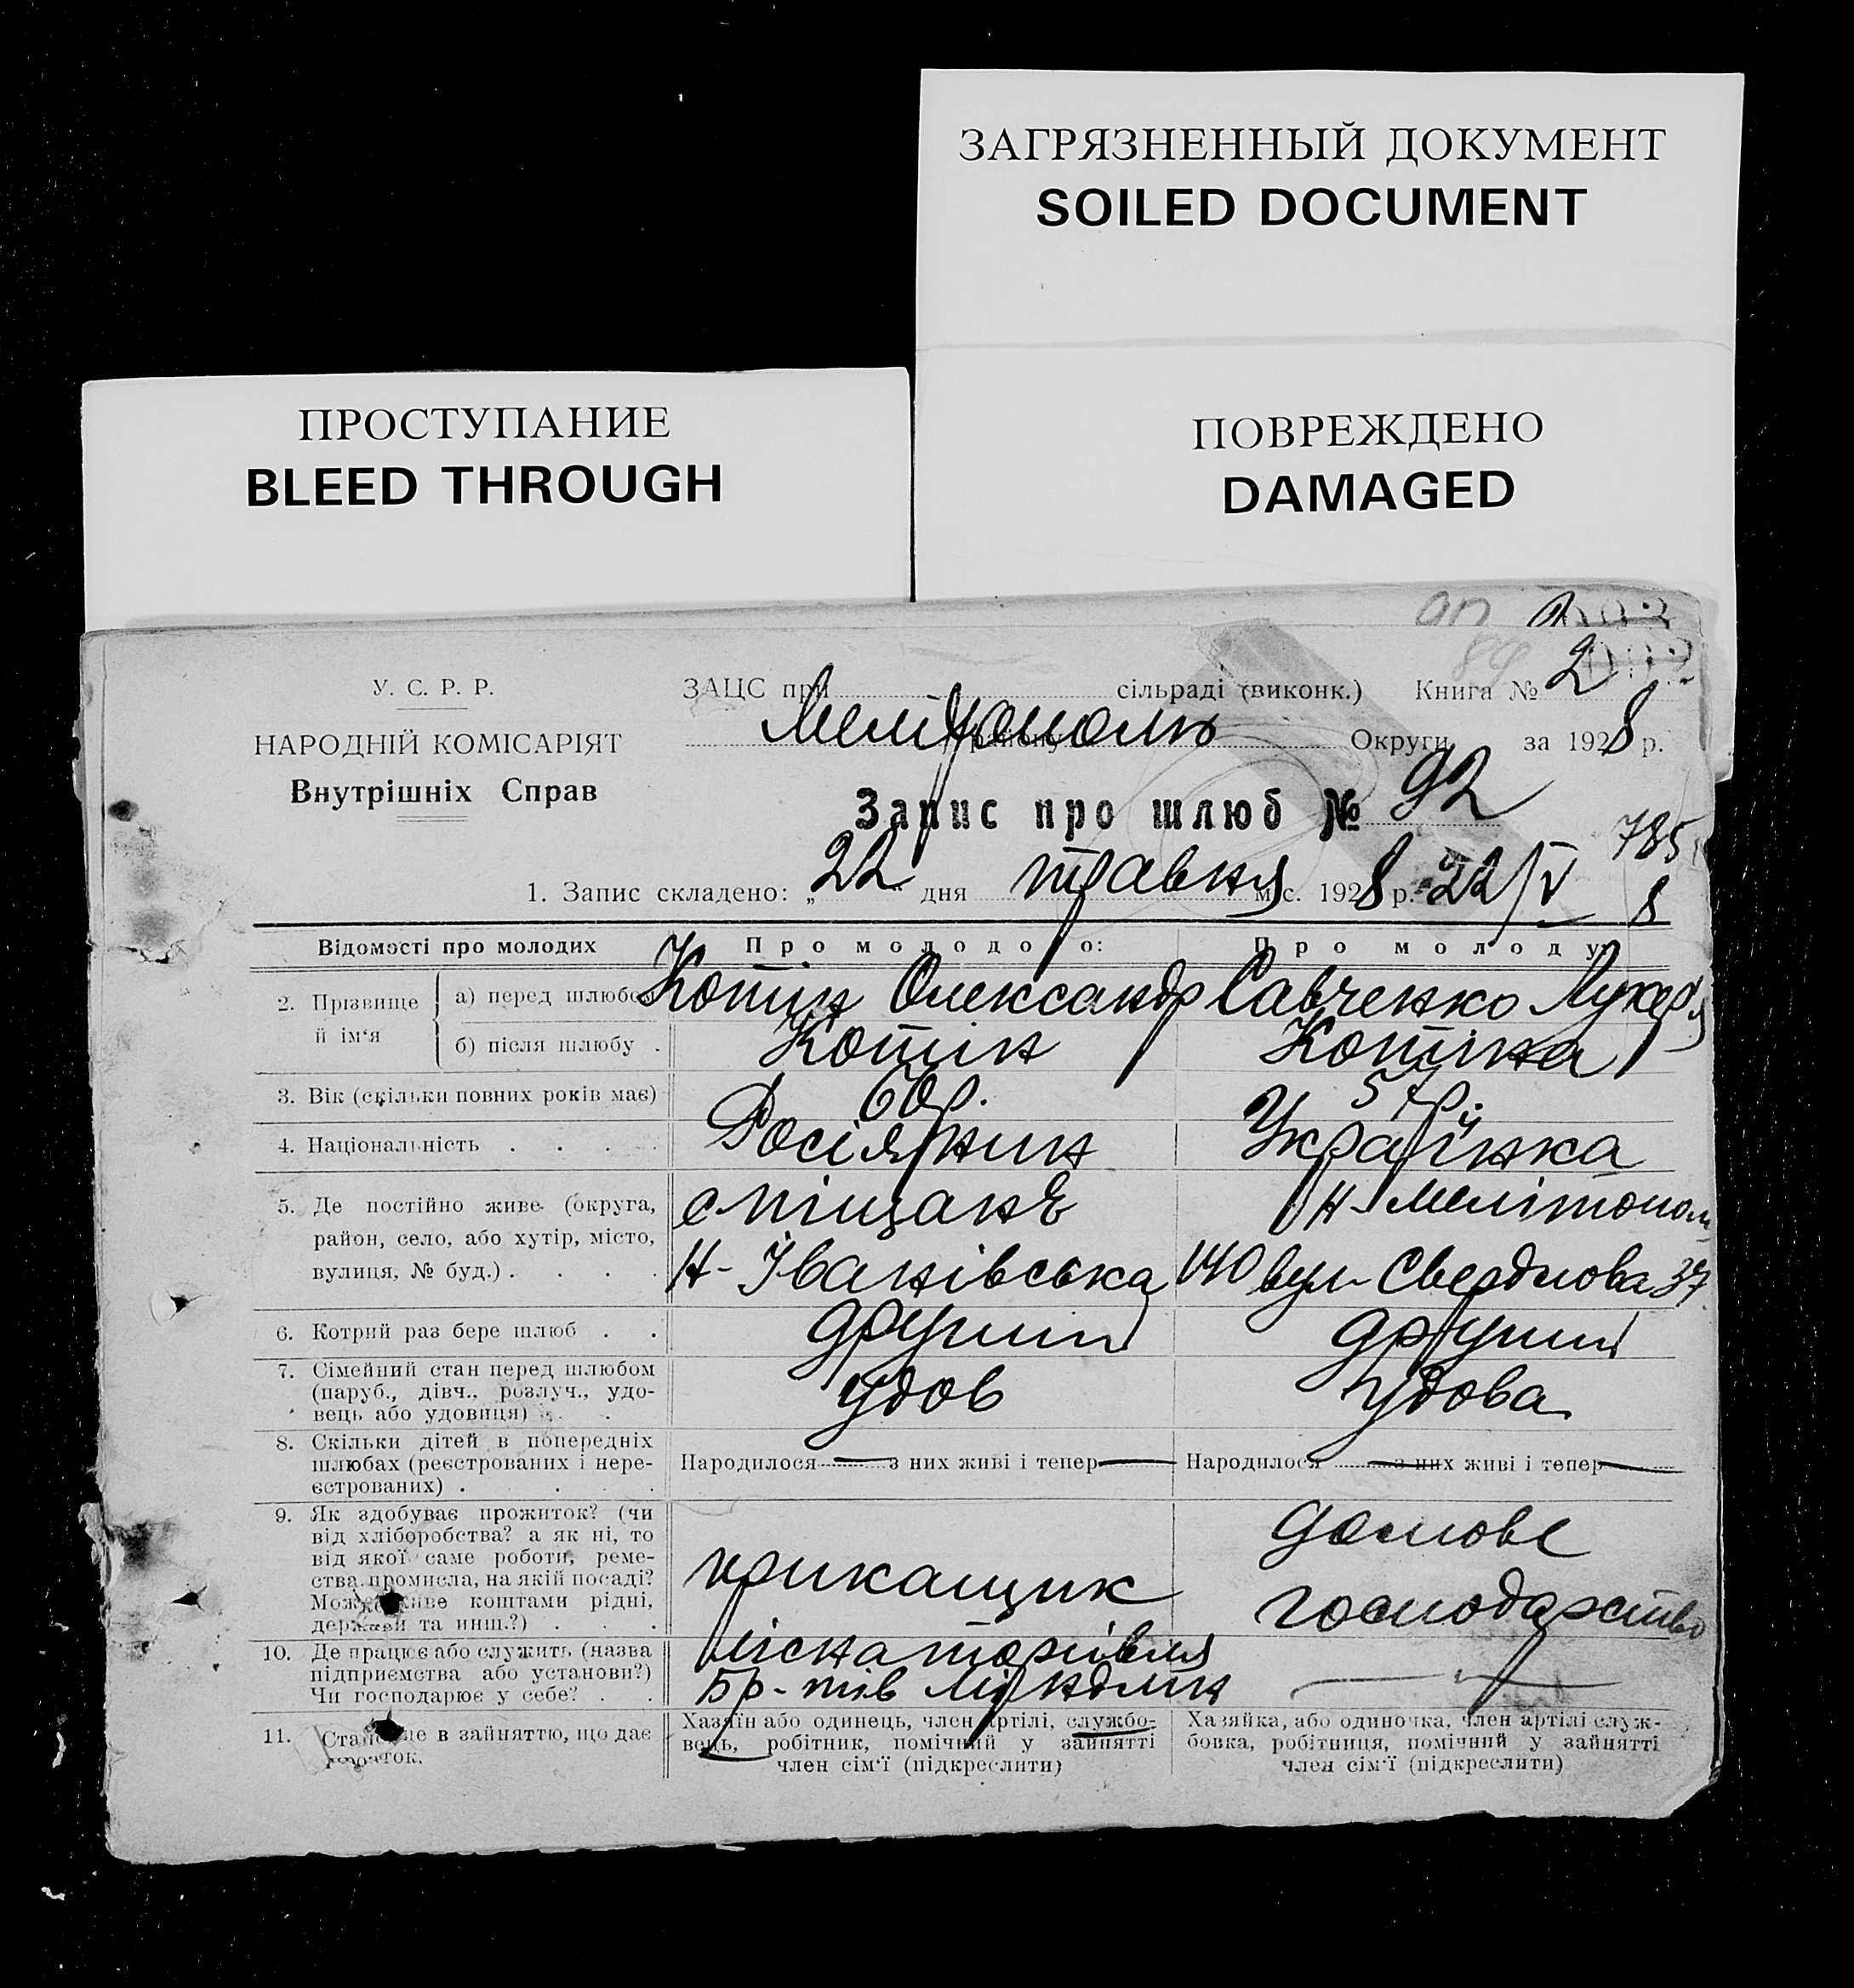 ЗАГРЯЗНЕННЫЙ ДОКУМЕНТ
SOILED DOCUMENT
ПРОСТУПАНИЕ
BLEED THROUGH
ПОВРЕЖДЕНО
DAMAGED
У. С. Р. Р.
НАРОДНІЙ КОМІСАРІЯТ
Внутрішніх Справ
ЗАЦС при сільраді (виконк.) Книга № 2
Мелітополь Округи за 1928 р.
Запис про шлюб № 92
785
1. Запис складено: „22" дня травня міс. 1928 р. 22/V 8
Відомості про молодих
Про молодого:
Про молоду:
2. Прізвище й ім‘я
а) перед шлюбом Котін Олександр Савченко Лукер‘я
б) після шлюбу . Котін Котіна
3. Вік (скільки повних років має) 60 р. 57 р.
4. Національність . . . . Росіянин Українка
5. Де постійно живе (округа, район, село, або хутір, місто, вулиця, № буд.) . . . .
с Піщане
Н-Іванівська 140
Н-Мелітополь
вул Свердлова 37
6. Котрий раз бере шлюб . . другий другий
7. Сімейний стан перед шлюбом (паруб., дівч., розлуч., удовець або удовиця) . . удов удова
8. Скільки дітей в попередніх шлюбах (реєстрованих і нереєстрованих) . . . .
Народилося — з них живі і тепер —
Народилося — з них живі і тепер —
9. Як здобуває прожиток? (чи від хліборобства? а як ні, то від якої саме роботи, ремества, промисла, на якій посаді? Може живе коштами рідні, держави та инш.?) . . .
прикащик
домове господарство
10. Де працює або служить (назва підприємства або установи?) Чи господарює у себе? . .
Бр-тів
—
11. Становище в зайняттю, що дає прожиток.
Хазяїн або одинець, член артілі, службовець, робітник, помічний у зайнятті член сім‘ї (підкреслити)
Хазяйка, або одиночка, член артілі службовка, робітниця, помічний у зайнятті член сім‘ї (підкреслити)